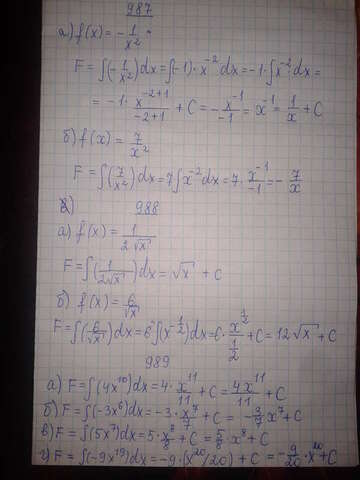 987
а) f(x) = - 1/x²
F = ∫(-1/x²)dx = ∫(-1)·x⁻²dx = -1·∫x⁻²dx =
= -1· x⁻²⁺¹/-2+1 + C = - x⁻¹/-1 = x⁻¹ = 1/x + C
б) f(x) = 7/x²
F = ∫(7/x²)dx = 7∫x⁻²dx = 7· x⁻¹/-1 = - 7/x
988
а) f(x) = 1/2√x
F = ∫(1/2√x)dx = √x + C
б) f(x) = 6/√x
F = ∫(6/√x)dx = 6∫(x^-1/2)dx = 6· x^1/2 / 1/2 + C = 12√x + C
989
а) F = ∫(4x¹⁰)dx = 4· x¹¹/11 + C = 4x¹¹/11 + C
б) F = ∫(-3x⁶)dx = -3· x⁷/7 + C = -3/7 x⁷ + C
в) F = ∫(5x⁷)dx = 5· x⁸/8 + C = 5/8 · x⁸ + C
г) F = ∫(-9x¹⁹)dx = -9·(x²⁰/20) + C = -9/20 · x²⁰ + C